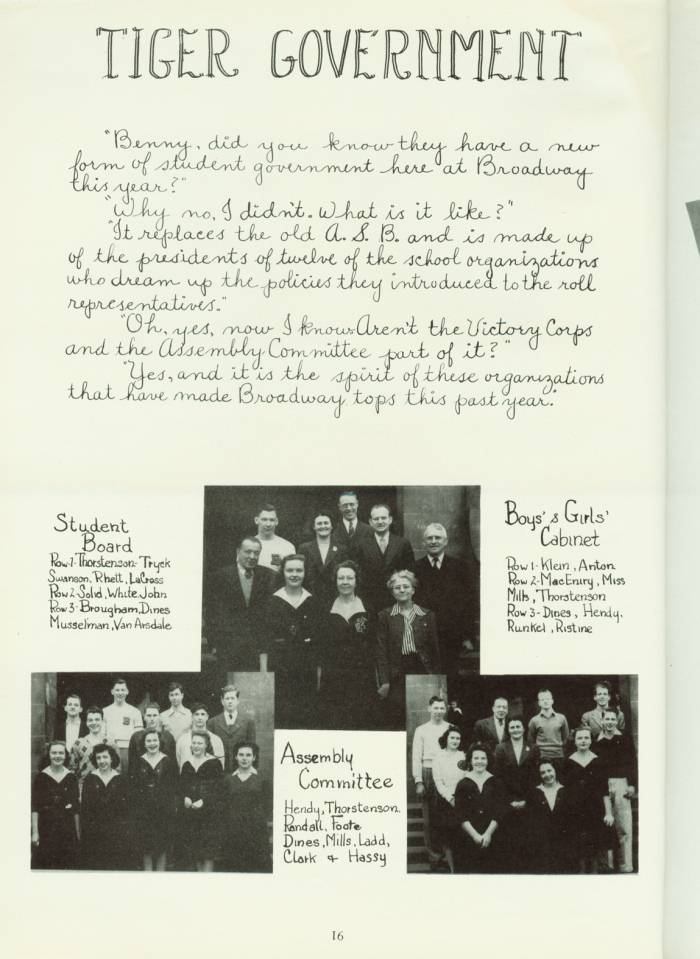 TIGER GOVERNMENT
"Benny, did you know they have a new
form of student government here at Broadway
this year?"
"Why no, I didn't. What is it like?"
"It replaces the old A. S. B. and is made up
of the presidents of twelve of the school organizations
who dream up the policies they introduced to the roll
representatives."
"Oh, yes, now I know. Aren't the Victory Corps
and the Assembly Committee part of it?"
"Yes, and it is the spirit of these organizations
that have made Broadway tops this past year."
Student
Board
Row 1 - Thorstenson - Tryck
Swanson, Rhett, LaCross
Row 2 - Solid, White, John
Row 3 - Brougham, Dines
Musselman, Van Arsdale
Boys' & Girls'
Cabinet
Row 1 - Klein, Anton
Row 2 - MacEniry, Miss
Mills, Thorstenson
Row 3 - Dines, Hendy,
Runkel, Ristine
Assembly
Committee
Hendy, Thorstenson,
Randall, Foote
Dines, Mills, Ladd,
Clark & Hassy
16